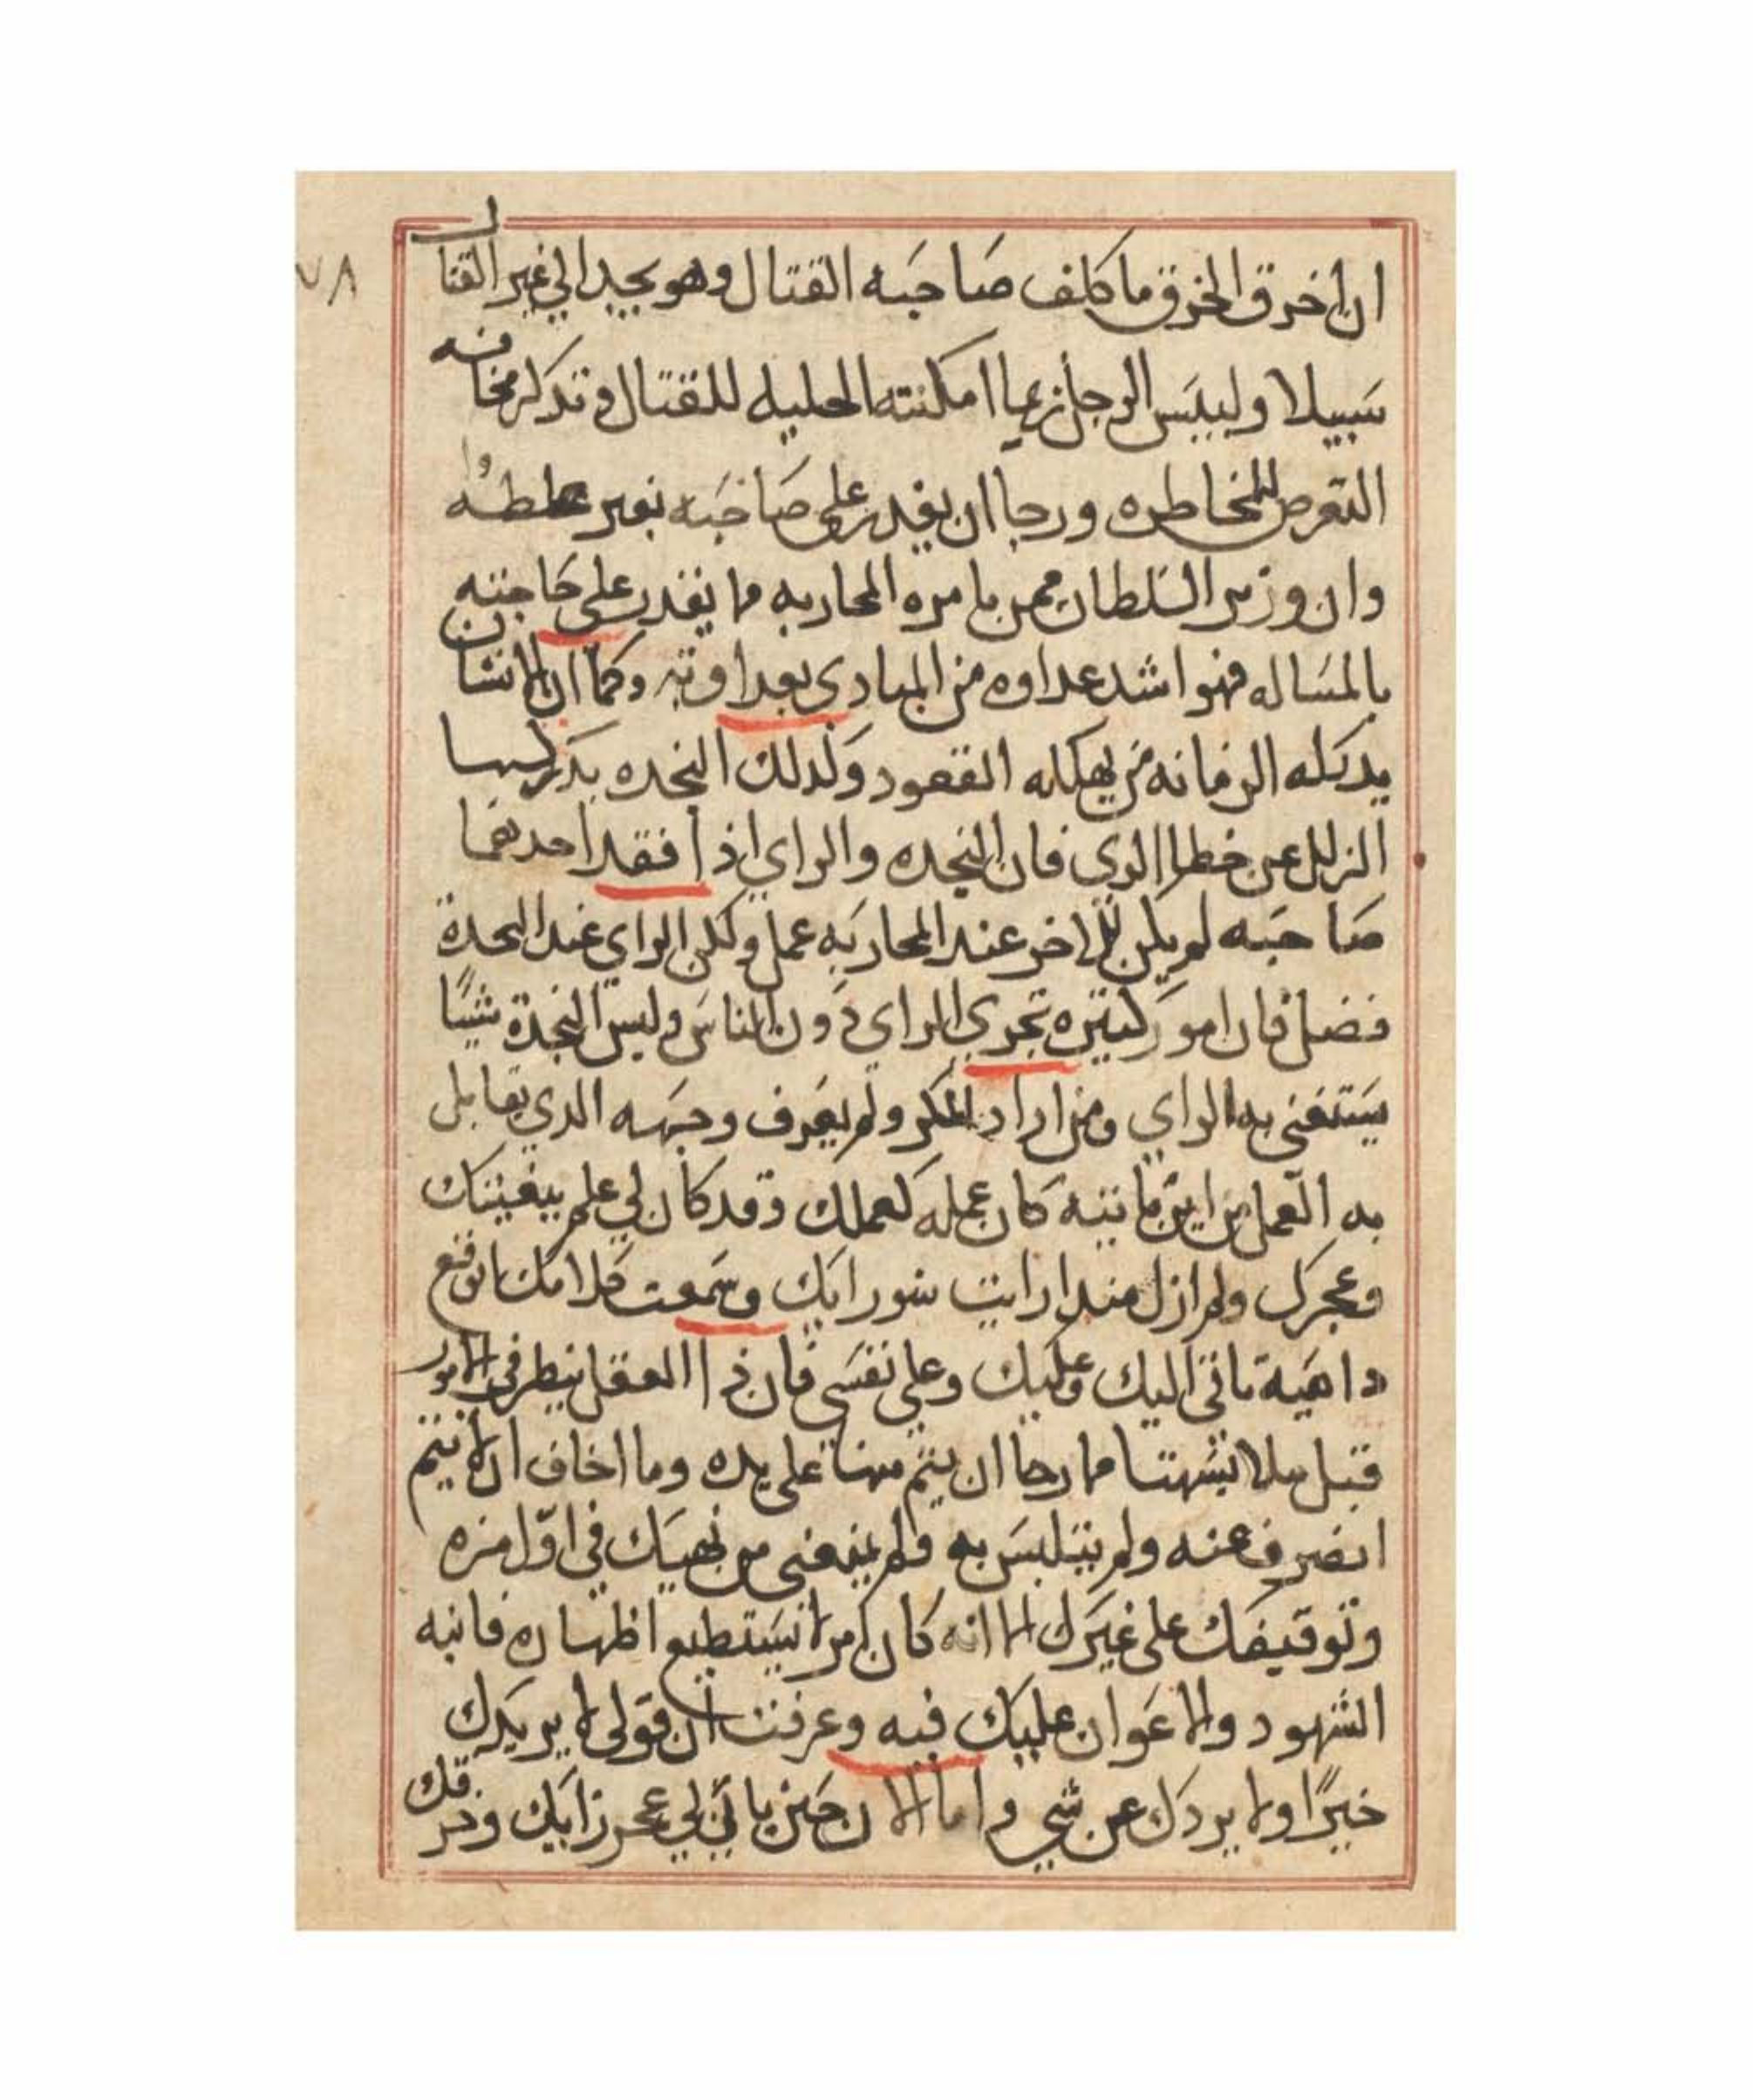 ٧٨
ان اخرق الخرق ما كلف صاحبه القتال وهو يجد الي غير القتال
سبيلا وليس الرجل زعيما امكنته الحليله للقتال وتدكر مخافه
التعرض للمخاطره ورجا ان يقدر علي صاحبه بغير
وان وزير السلطان ممن يامره المحاربه ما يقدر علي حاجته
بالمساله فهو اشد عداوه من المبادي بعداوته وكما ان الانسان
يدكله الزمانه من يهكله القعود ولدلك النجده بدركها
الزلل عن خطا الري فان النجده والراي اذا فقد احدهما
صاحبه لم يكن للاخر عند المحاربه عمل ولكن الراي عند النجدة
فضل فان امور كثيره تجري الراي دون الناس وليس النجدة شيئا
يستغني به الراي ومن اراد المكر ولم يعرف وجهه الدي يقابل
به العمل من اين ماتيه كان عمله كعملك وقد كان لي علم ببغيتك
وعجرك ولم ازل مندا رايت سورايك وسمعت كلامك اتوقع
داهية تاتي اليك وعليك وعلي نفسي فان ذا العقل ينظر في الامور
قبل ملابستها فما رجا ان يتم منها علي يده وما اخاف ان لا يتم
انصرف عنه ولم يتلبس به ولم يمنعني من نهيك في اول مره
وتوقيفك علي غيرك الا انه كان امرا نستطيع اظهاره فانبه
الشهود والاعوان عليك فيه وعرفت ان قولي لا يريدك
خيرًا ولا يردك عن شي واما الان حين يا لي عجر رايك وخرقك